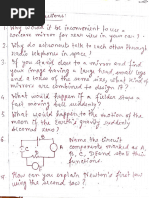 Questions:
1. Why would it be inconvenient to use a
concave mirror for rear view in your car?
2. Why do astronauts talk to each other through
radio telephones in space?
3. If you stand close to a mirror and find
your image having a large head, small legs
and a torso of the same size, what kind of
mirrors are combined to design it?
4. What would happen if a fielder stops a
fast moving ball suddenly?
5. What would happen to the motion of the
moon if the earth's gravity suddenly
becomes zero?
6.
Name the circuit
components marked as A,
B, C, D and state their
functions
A
B
C
D
7. How can you explain Newton's first law
using the second law?